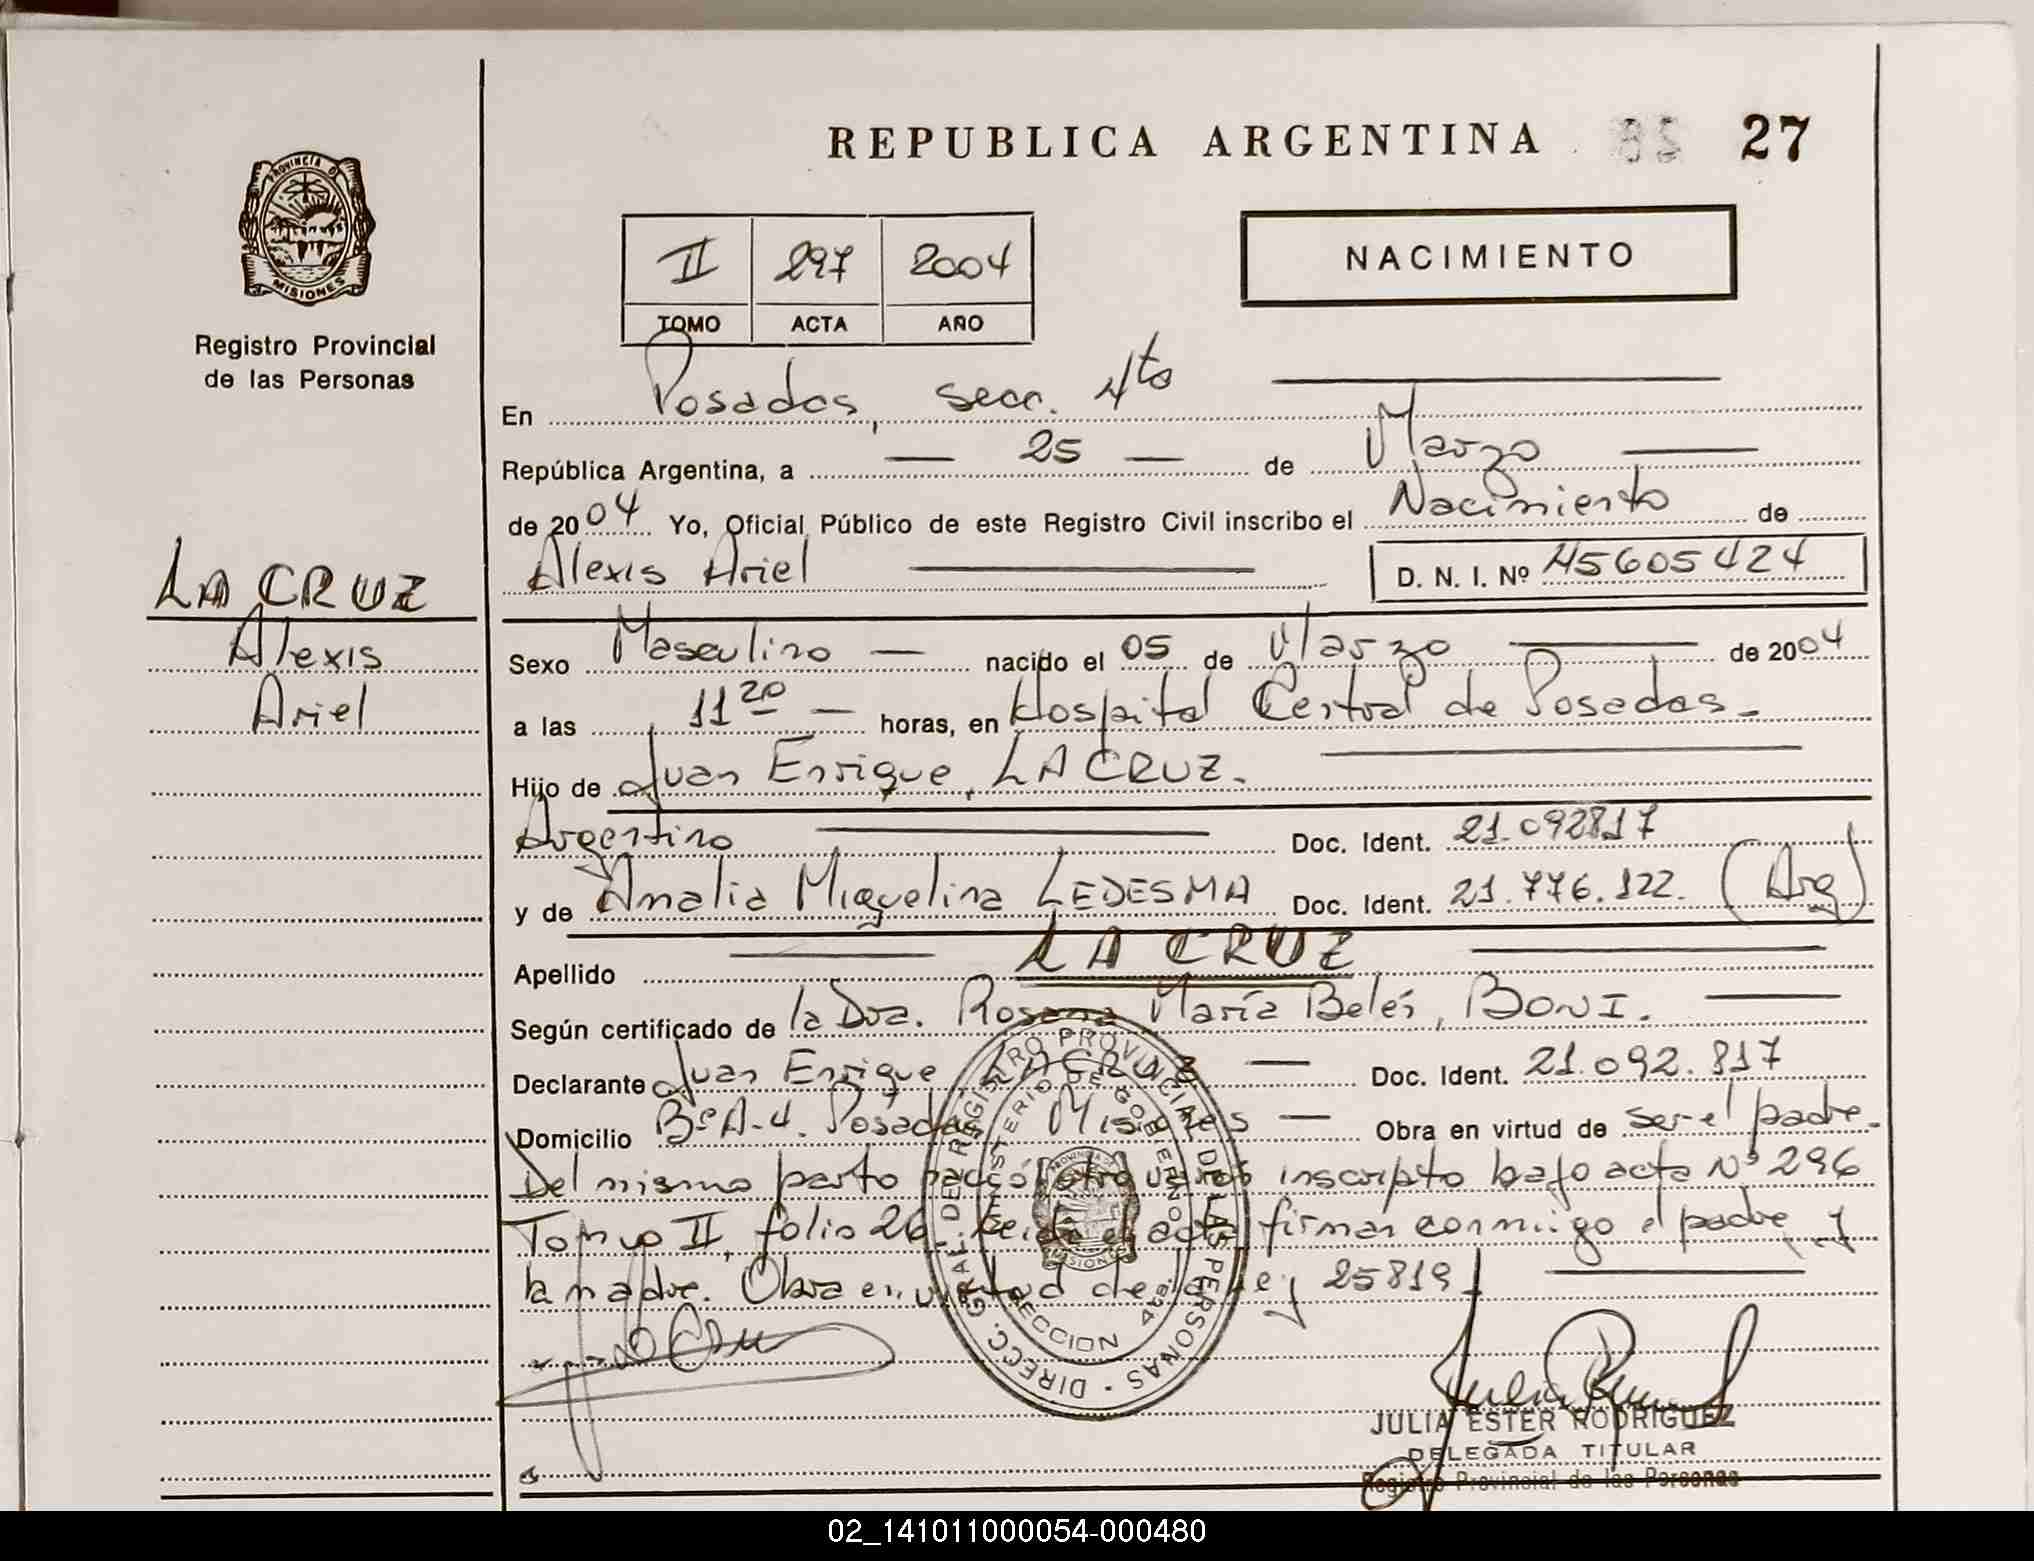 REPUBLICA ARGENTINA 27
PROVINCIA D
MISIONES
Registro Provincial
de las Personas
II 297 2004
TOMO ACTA AÑO
NACIMIENTO
En Posadas, secc. 4ta
República Argentina, a — 25 — de Marzo
de 2004 Yo, Oficial Público de este Registro Civil inscribo el Nacimiento de
Alexis Ariel D. N. I. Nº 45605424
LA CRUZ
Alexis
Ariel
Sexo Masculino — nacido el 05 de Marzo de 2004
a las 11 20 — horas, en Hospital Central de Posadas.
Hijo de Juan Enrique, LA CRUZ.
Argentino Doc. Ident. 21.092817
y de Amalia Miguelina LEDESMA Doc. Ident. 21.776.122. (Arg)
Apellido LA CRUZ
Según certificado de la Dra. Rosana María Belén, BONI.
Declarante Juan Enrique LA CRUZ — Doc. Ident. 21.092.817
Domicilio Bº A-4. Posadas Misiones — Obra en virtud de ser el padre.
Del mismo parto nació otro varón inscripto bajo acta Nº 296
Tomo II, folio 26. Leida el acta firman conmigo el padre y
la madre. Obra en virtud de la Ley 25819
DIRECC. GRAL. DEL REGISTRO PROVINCIAL DE LAS PERSONAS
MINISTERIO DE GOBIERNO
SECCION 4ta.
MISIONES
JULIA ESTER RODRIGUEZ
DELEGADA TITULAR
Registro Provincial de las Personas
02_141011000054-000480